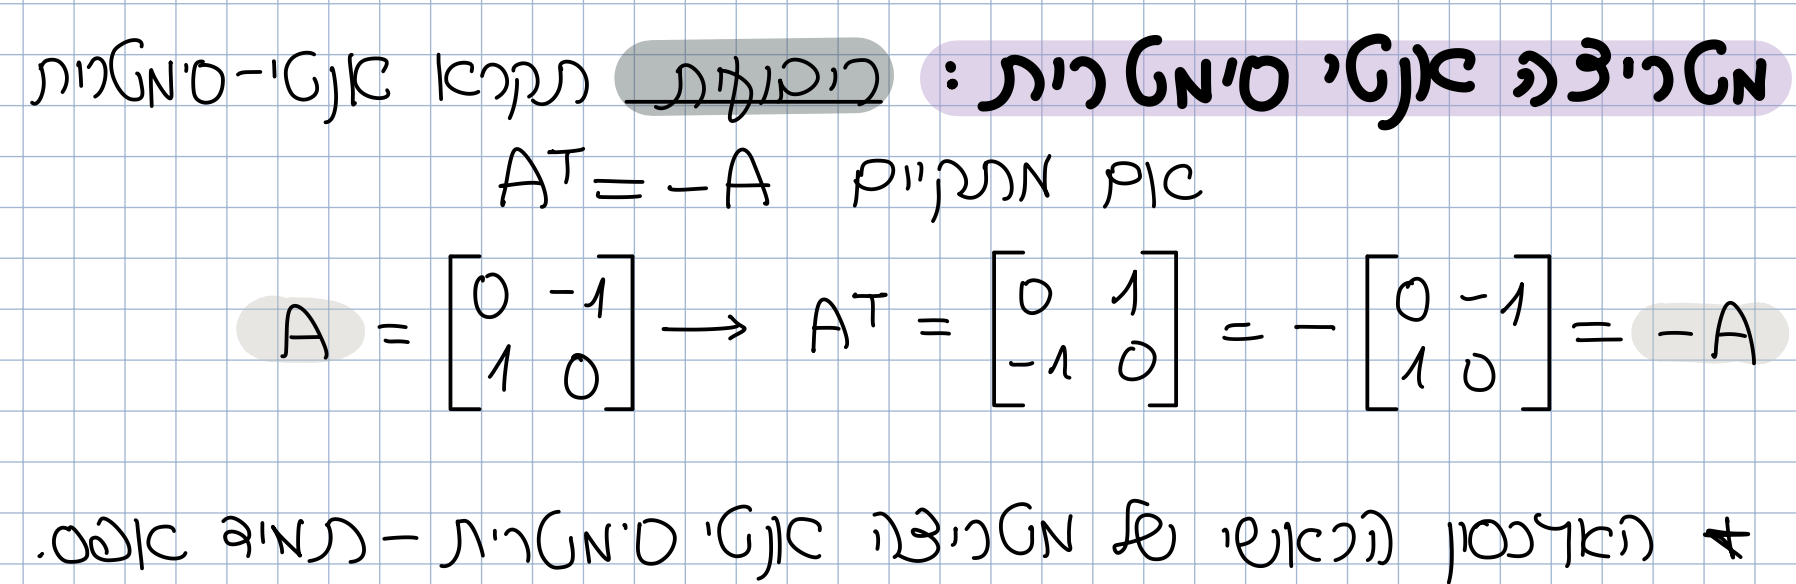 מטריצה אנטי סימטרית: ריבועית תקרא אנטי-סימטרית
אם מתקיים A^T = -A
A = [0 -1; 1 0] → A^T = [0 1; -1 0] = -[0 -1; 1 0] = -A
* האלכסון הראשי של מטריצה אנטי סימטרית - תמיד אפס.